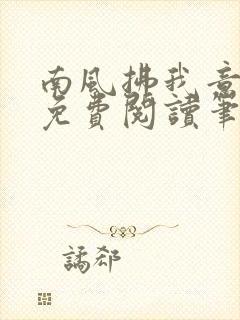 南風拂我意
免費閱讀筆
譎郄